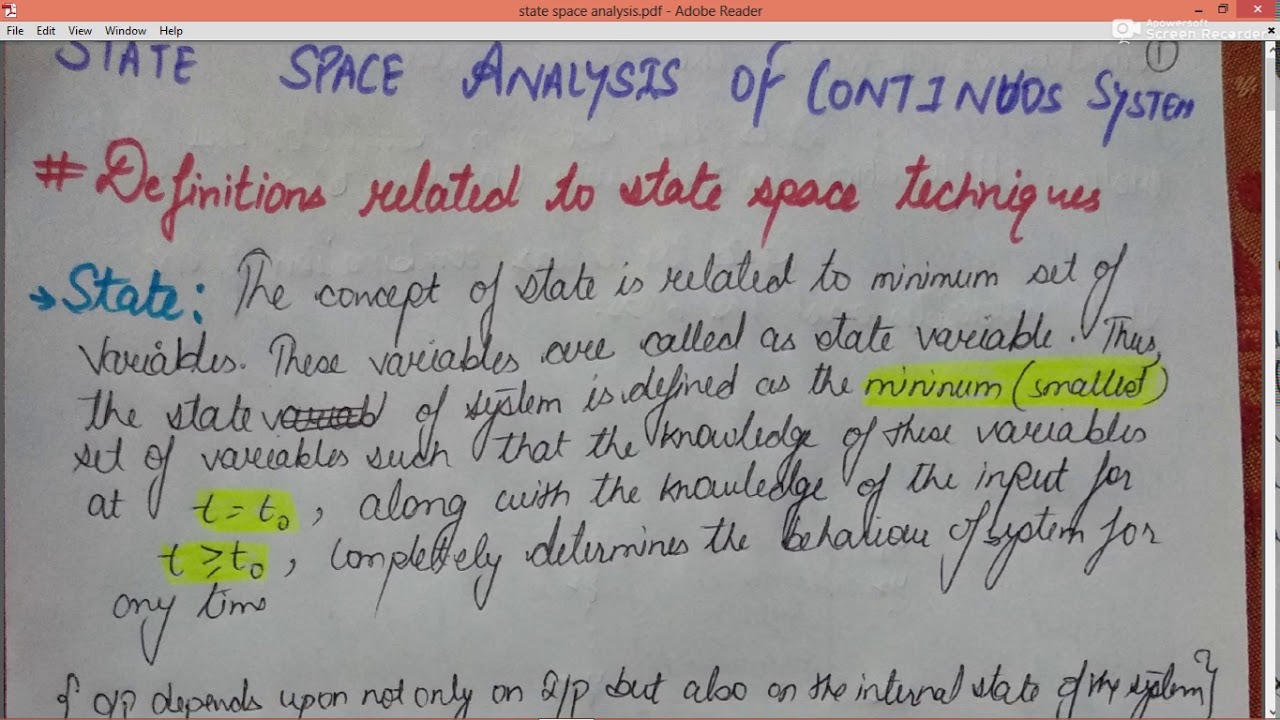 state space analysis.pdf - Adobe Reader
File Edit View Window Help
Apowersoft
Screen Recorder
1
STATE SPACE ANALYSIS OF CONTINUOS SYSTEM
# Definitions related to state space techniques
→ State: The concept of state is related to minimum set of
variables. These variables are called as state variable. Thus,
the state of system is defined as the mininum (smallest)
set of variables such that the knowledge of these variables
at t = t₀, along with the knowledge of the input for
t ≥ t₀, completely determines the behaviour of system for
any time
{ o/p depends upon not only on I/p but also on the internal state of the system}